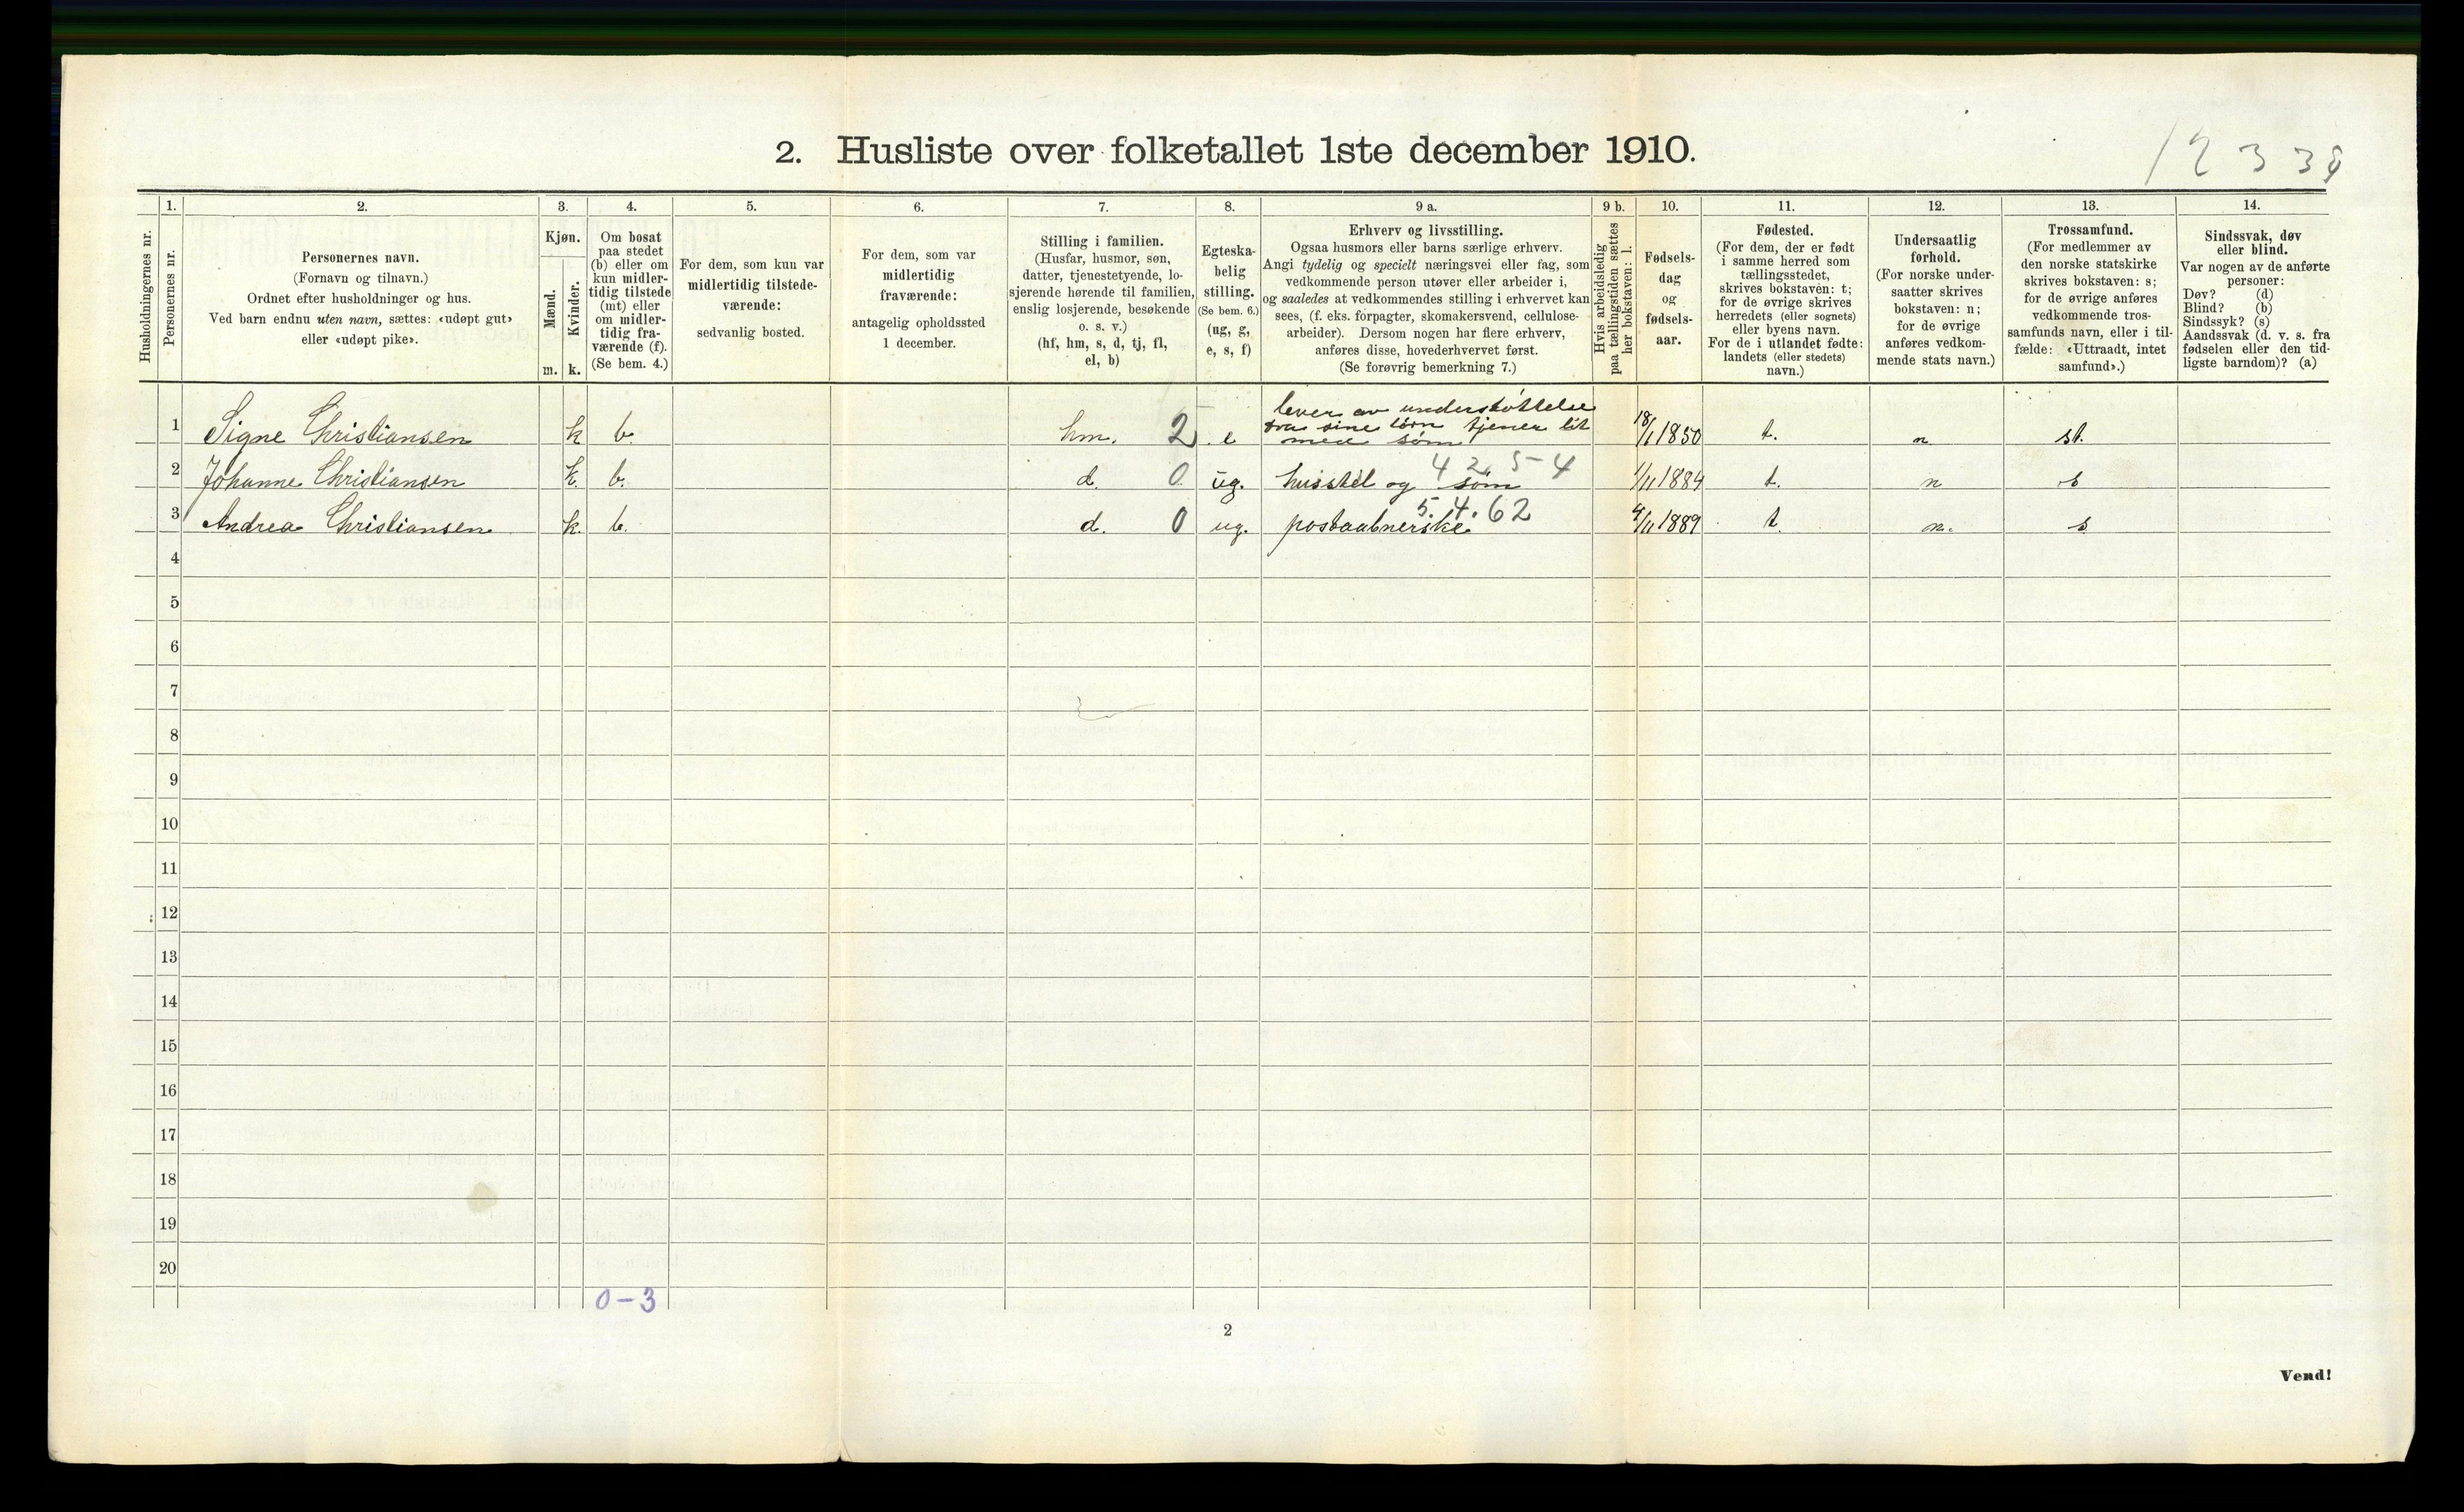 2. Husliste over folketallet 1ste december 1910.
1 2 3 3
1. 2. 3. 4. 5. 6. 7. 8. 9 a. 9 b. 10. 11. 12. 13. 14.
Husholdningernes nr.
Personernes nr.
Personernes navn.
(Fornavn og tilnavn.)
Ordnet efter husholdninger og hus.
Ved barn endnu uten navn, sættes: «udøpt gut»
eller «udøpt pike».
Kjøn.
Mænd.
Kvinder.
m. k.
Om bosat
paa stedet
(b) eller om
kun midler-
tidig tilstede
(mt) eller
om midler-
tidig fra-
værende (f).
(Se bem. 4.)
For dem, som kun var
midlertidig tilstede-
værende:
sedvanlig bosted.
For dem, som var
midlertidig
fraværende:
antagelig opholdssted
1 december.
Stilling i familien.
(Husfar, husmor, søn,
datter, tjenestetyende, lo-
sjerende hørende til familien,
enslig losjerende, besøkende
o. s. v.)
(hf, hm, s, d, tj, fl,
el, b)
Egteska-
belig
stilling.
(Se bem. 6.)
(ug, g,
e, s, f)
Erhverv og livsstilling.
Ogsaa husmors eller barns særlige erhverv.
Angi tydelig og specielt næringsvei eller fag, som
vedkommende person utøver eller arbeider i,
og saaledes at vedkommendes stilling i erhvervet kan
sees, (f. eks. forpagter, skomakersvend, cellulose-
arbeider). Dersom nogen har flere erhverv,
anføres disse, hovederhvervet først.
(Se forøvrig bemerkning 7.)
Hvis arbeidsledig
paa tællingstiden sættes
her bokstaven: l.
Fødsels-
dag
og
fødsels-
aar.
Fødested.
(For dem, der er født
i samme herred som
tællingsstedet,
skrives bokstaven: t;
for de øvrige skrives
herredets (eller sognets)
eller byens navn.
For de i utlandet fødte:
landets (eller stedets)
navn.)
Undersaatlig
forhold.
(For norske under-
saatter skrives
bokstaven: n;
for de øvrige
anføres vedkom-
mende stats navn.)
Trossamfund.
(For medlemmer av
den norske statskirke
skrives bokstaven: s;
for de øvrige anføres
vedkommende tros-
samfunds navn, eller i til-
fælde: «Uttraadt, intet
samfund».)
Sindssvak, døv
eller blind.
Var nogen av de anførte
personer:
Døv? (d)
Blind? (b)
Sindssyk? (s)
Aandssvak (d. v. s. fra
fødselen eller den tid-
ligste barndom)? (a)
lever av understøttelse
fra sine børn tjener lit
1 Signe Christiansen k b. hm. 2 e med søm 18/1 1850 t. n st.
4 2 5 4
2 Johanne Christiansen k. b. d. 0 ug. husstel og søm 1/11 1884 t. n s
5.4.62
3 Andrea Christiansen k. b. d. 0 ug. postaabnerske 4/11 1889 t. n. s
4
5
6
7
8
9
10
11
12
13
14
15
16
17
18
19
20
0-3
2
Vend!